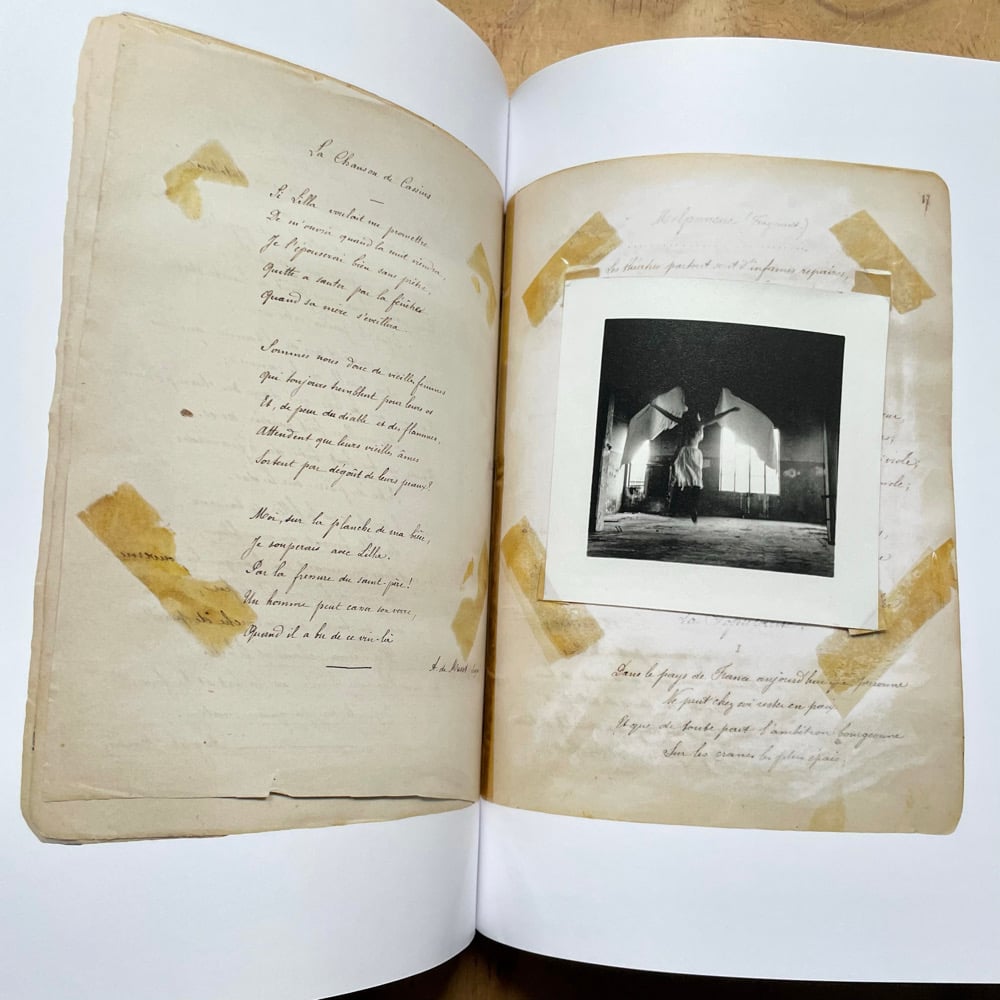 La Chanson de Cassius
Si Lilla voulait me promettre
De m'ouvrir quand la nuit viendra,
Je l'épouserai bien sans prêtre,
Quitte à sauter par la fenêtre
Quand sa mère s'éveillera
Sommes nous donc de vieilles femmes
Qui toujours tremblent pour leurs os
Et, de peur du diable et des flammes,
Attendent que leurs vieilles âmes
Sortent par dégoût de leurs peaux?
Moi, sur la planche de ma bière,
Je souperais avec Lilla.
Par la fressure du saint-père!
Un homme peut casser son verre,
Quand il a bu de ce vin-là
A. de Musset
17
Melpomène (Fragment)
Les théâtres partout sont d'infames repaires,
I
Dans le pays de France aujourd'hui que personne
Ne peut chez soi rester en paix,
Et que de toute part l'ambition bourgeonne
Sur les cranes les plus épais,